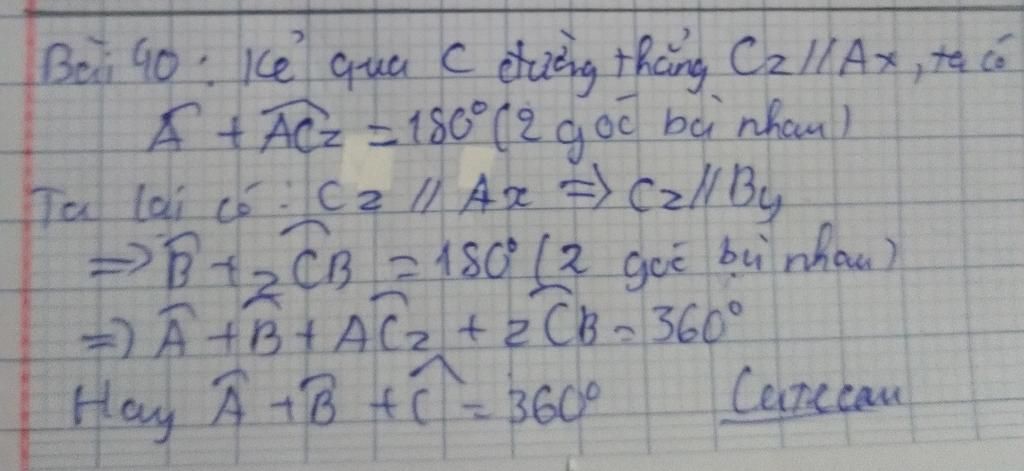 Bài 40: Kẻ qua C đường thẳng Cz//Ax, ta có
Â + ACz = 180° (2 góc bù nhau)
Ta lại có: Cz // Ax => Cz//By
=> B + zCB = 180° (2 góc bù nhau)
=> Â + B + ACz + zCB = 360°
Hay Â + B + Ĉ = 360°